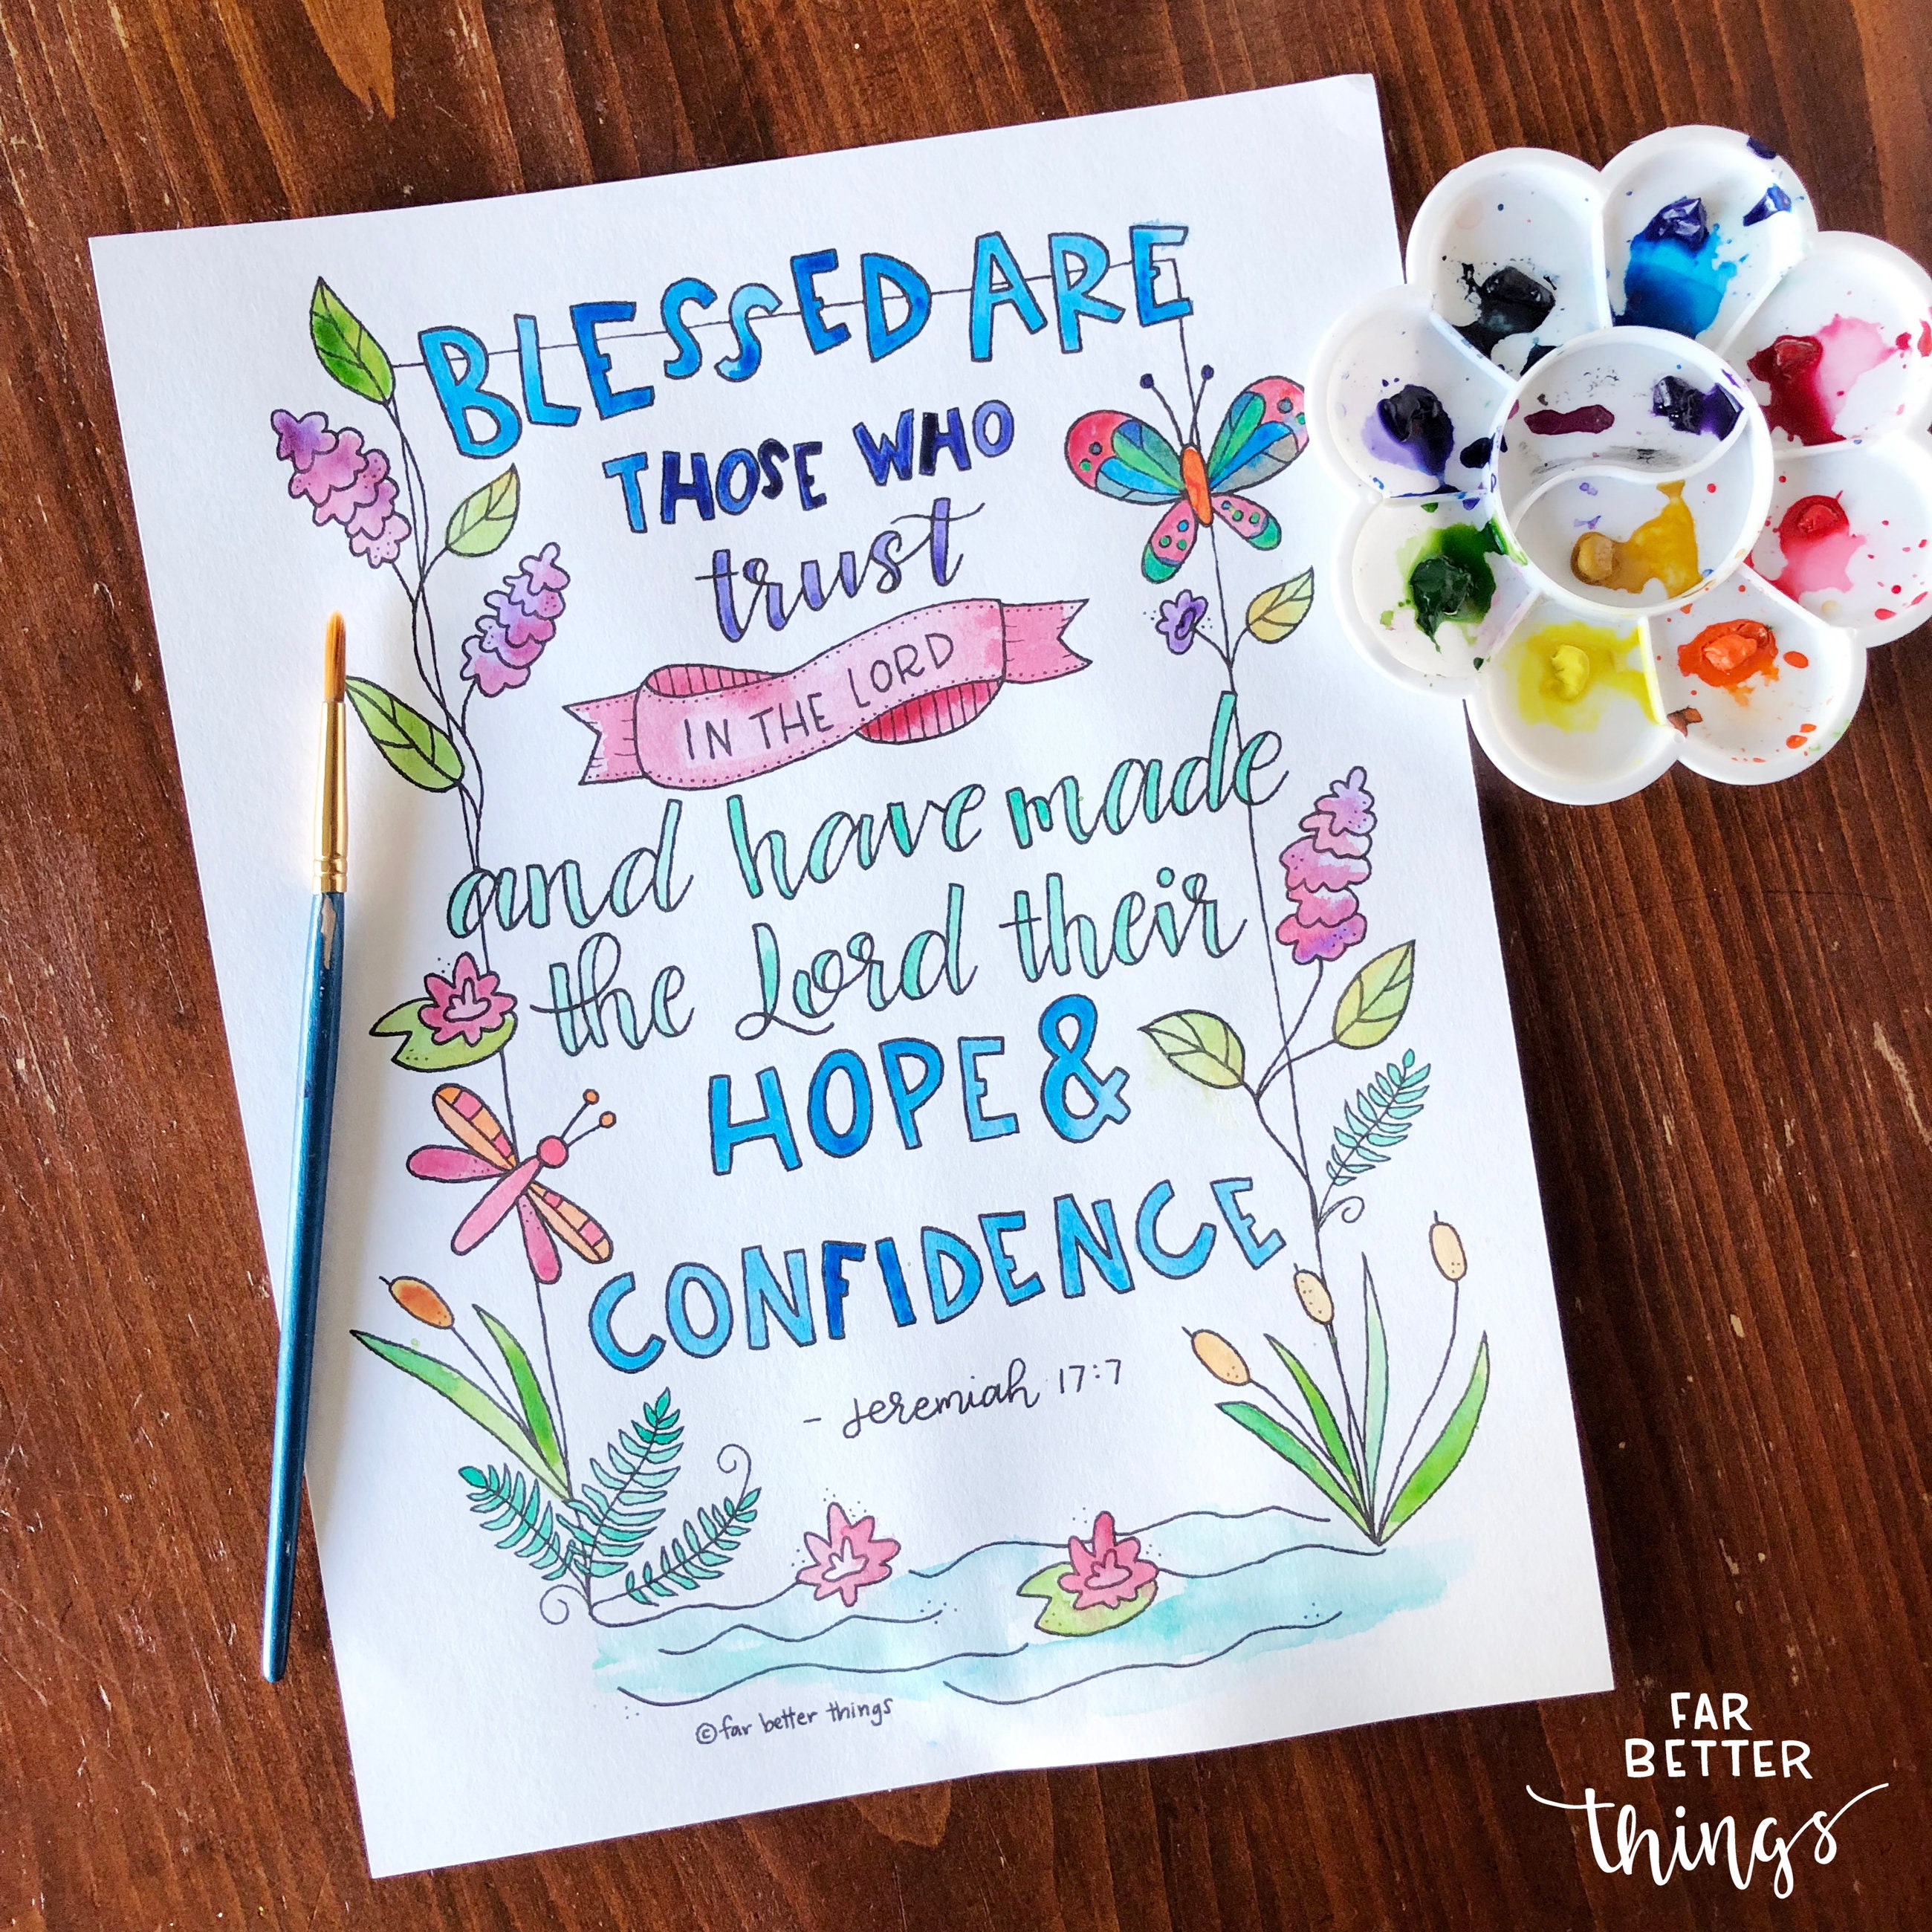 BLESSED ARE
THOSE WHO
trust
IN THE LORD
and have made
the Lord their
HOPE &
CONFIDENCE
- Jeremiah 17:7
©far better things
FAR
BETTER
things